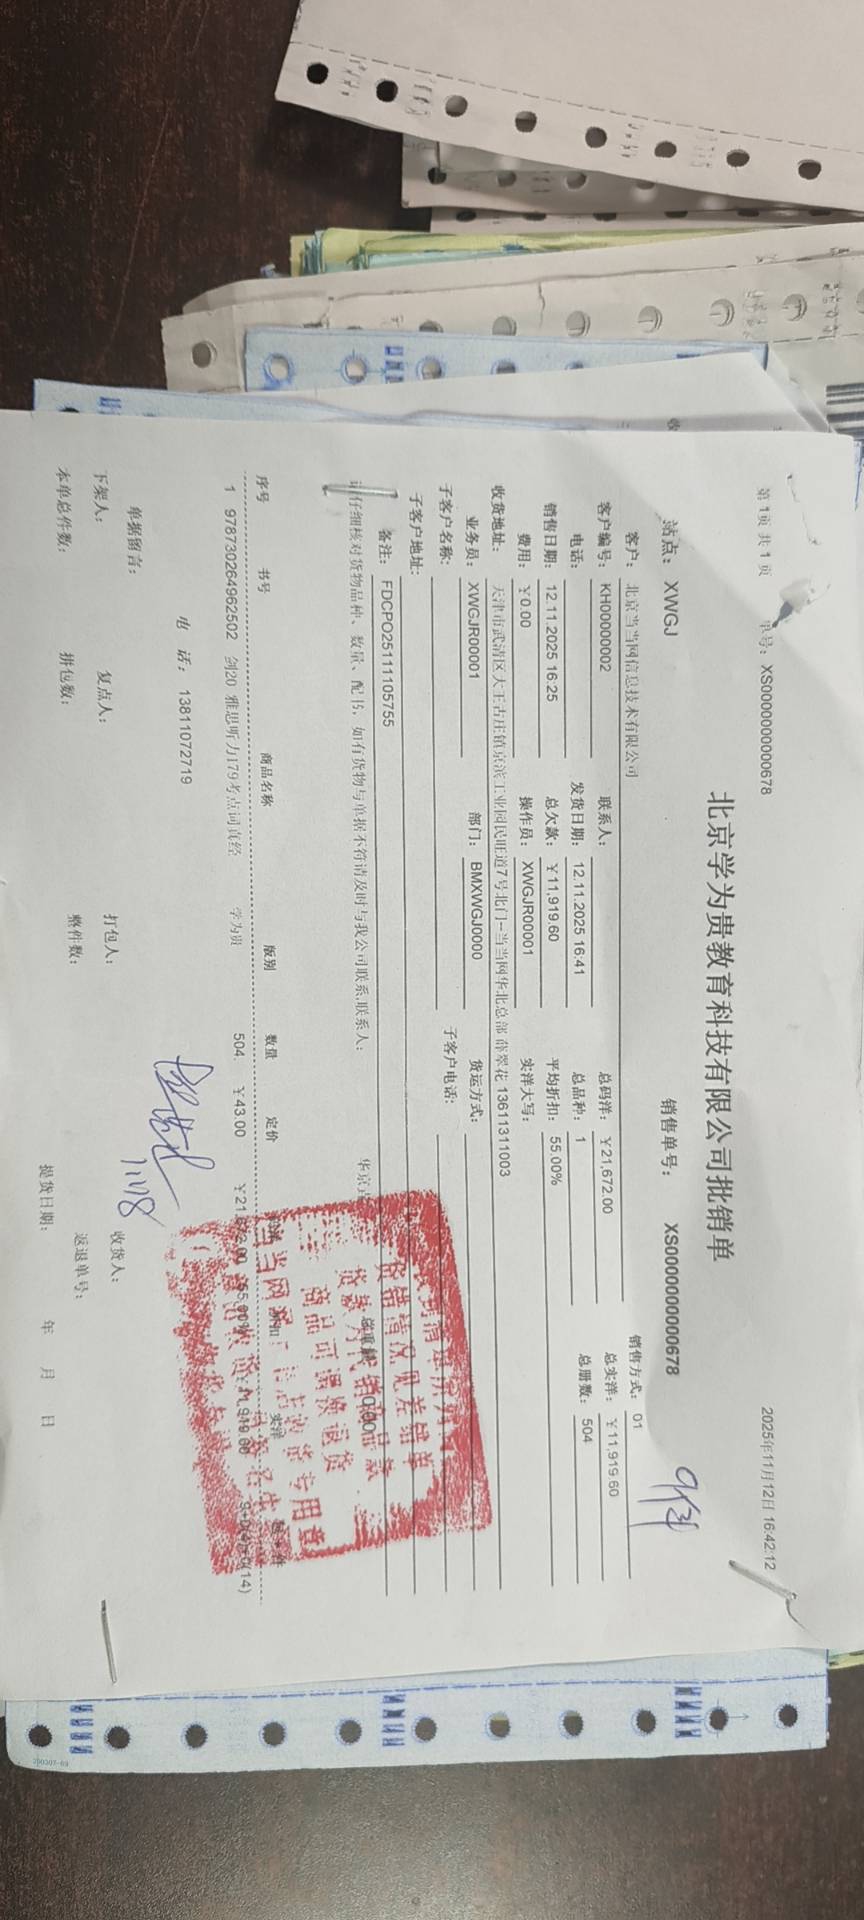 第 1页 共 1 页 单号: XS0000000000678 2025年11月12日 16:42:12
北京学为贵教育科技有限公司批销单
站点: XWGJ 销售单号: XS0000000000678
9件
客户: 北京当当网信息技术有限公司 销售方式: 01
客户编号: KH00000002 联系人: 总码洋: ￥21,672.00 总实洋: ￥11,919.60
电话: 发货日期: 12.11.2025 16:41 总品种: 1 总册数: 504
销售日期: 12.11.2025 16:25 总欠款: ￥11,919.60 平均折扣: 55.00%
费用: ￥0.00 操作员: XWGJR00001 实洋大写:
收货地址: 天津市武清区大王古庄镇京滨工业园民旺道7号北门--当当网华北总部 薛翠花 13611311003
业务员: XWGJR00001 部门: BMXWGJ0000 货运方式:
子客户名称: 子客户电话:
子客户地址:
备注: FDCPO25111105755
请仔细核对货物品种、数量、配书，如有货物与单据不符请及时与我公司联系,联系人:
序号 书号 商品名称 版别 数量 定价 折扣 实洋
1 9787302649625 剑20 雅思听力179考点词真经 学为贵 504 ￥43.00
电 话: 13811072719
单据留言:
下架人: 复点人: 打包人: 收货人:
本单总件数: 拼包数: 整件数: 返退单号:
提货日期: 年 月 日
货错情况见差错单
商品可调换退货